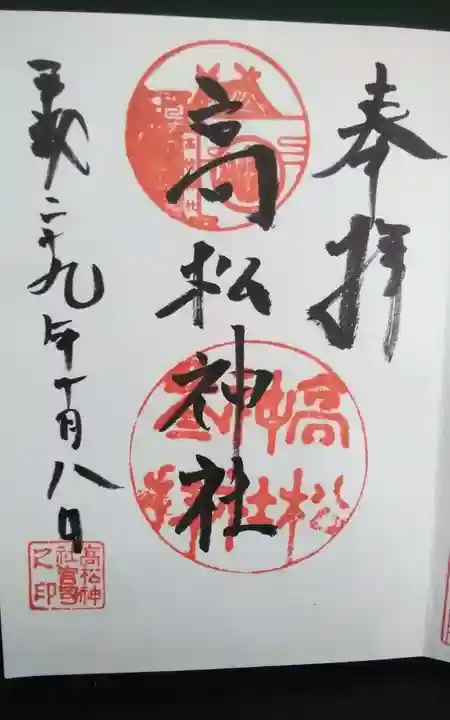 奉拝
高松神社
平成二十九年十月八日
高松神
社宮司
之印